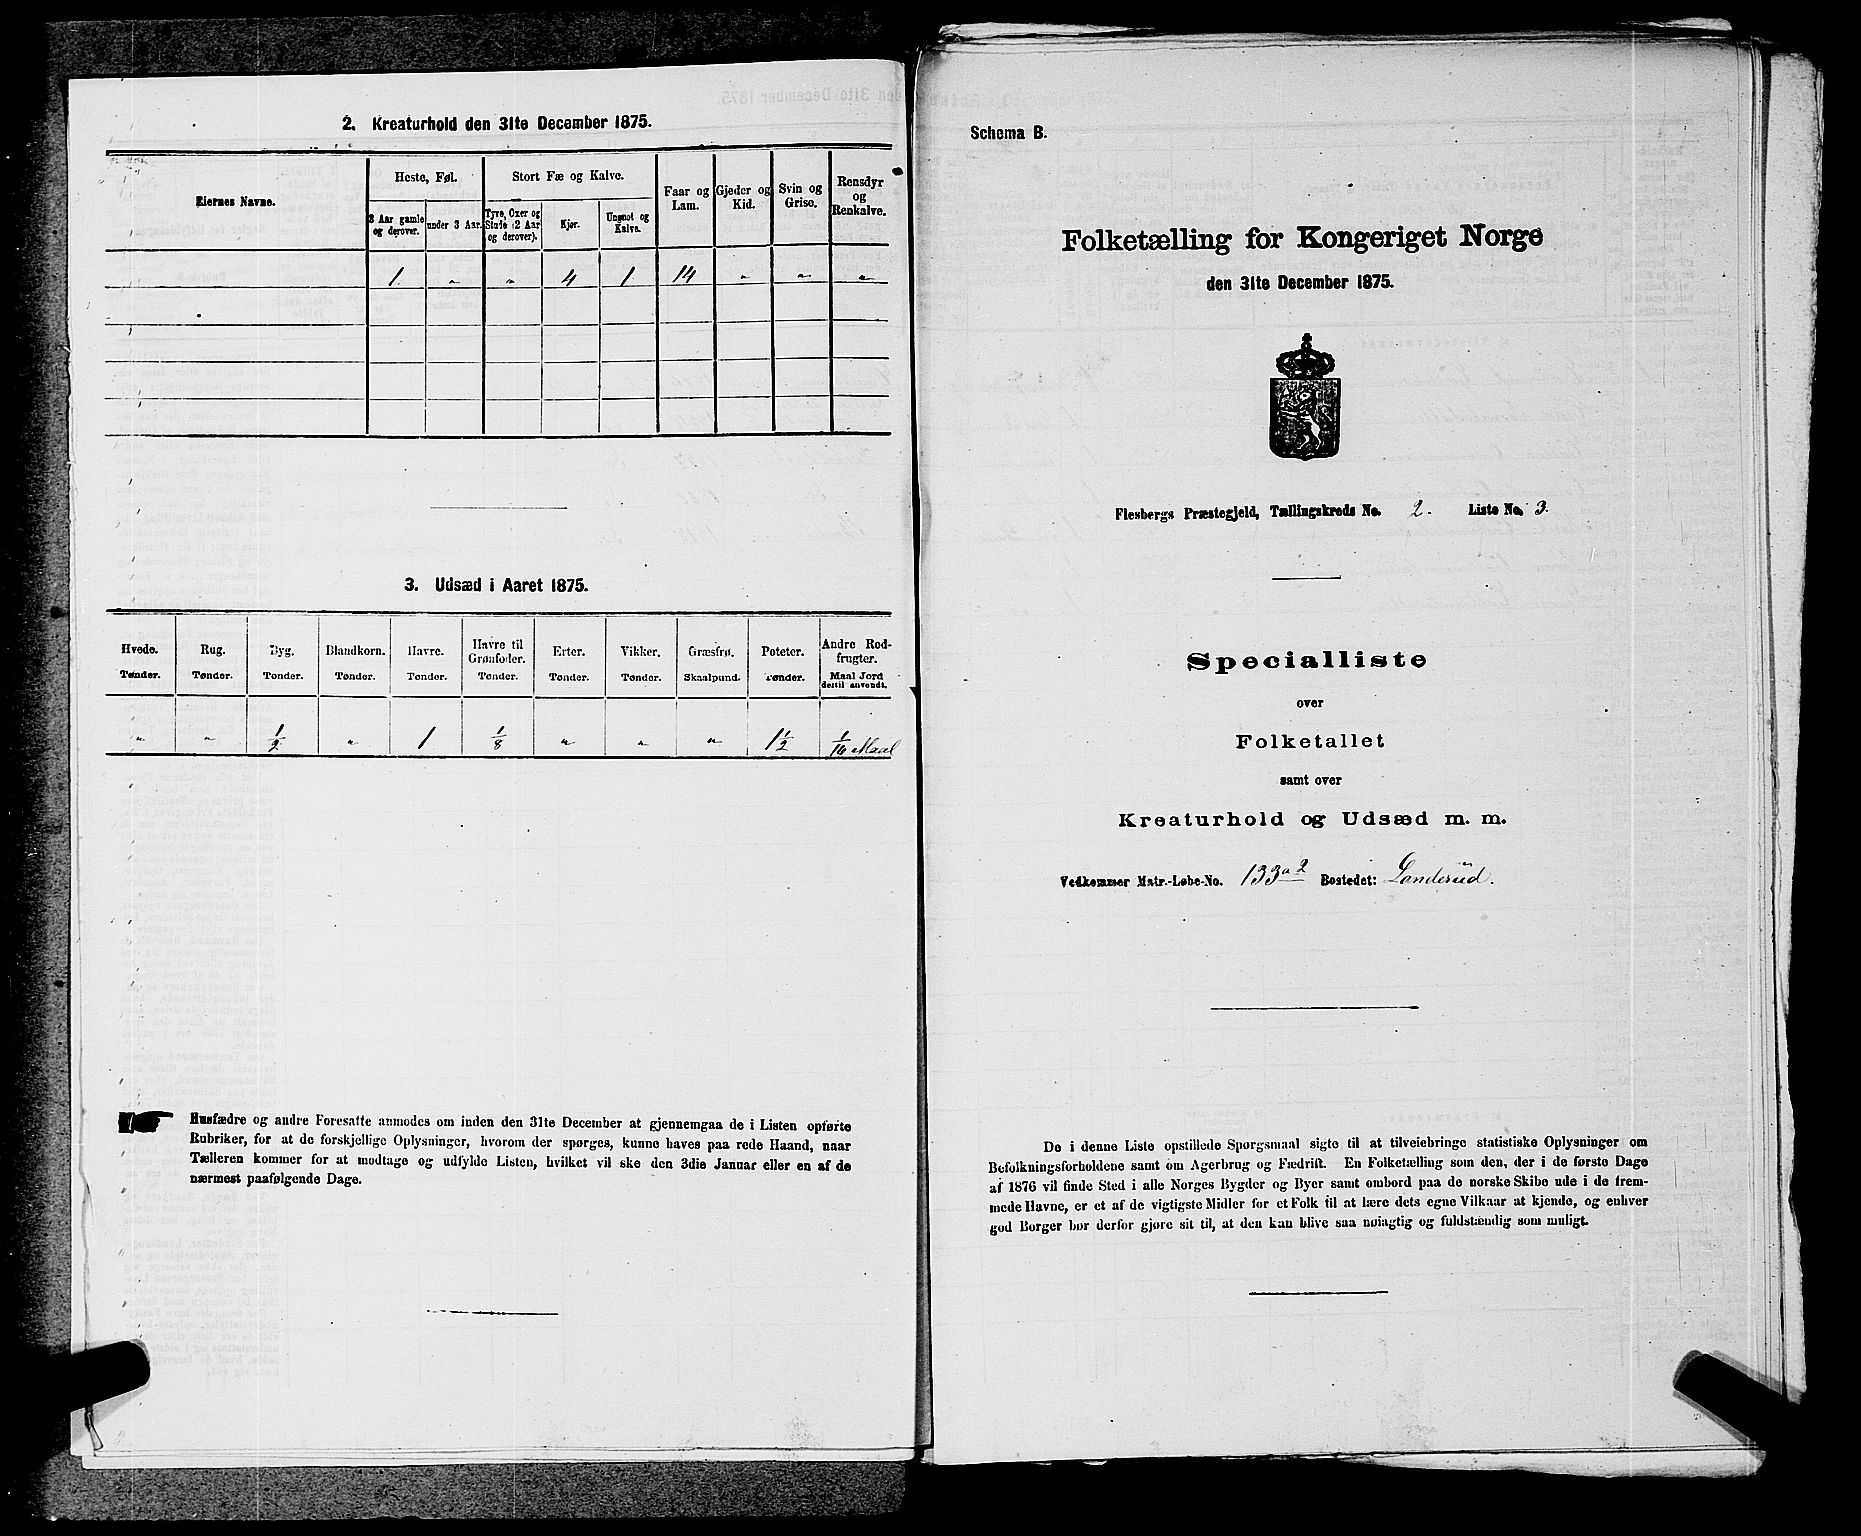 2. Kreaturhold den 31te December 1875.
Eiernes Navne.
Heste, Føl.
Stort Fæ og Kalve.
Faar og Lam.
Gjeder og Kid.
Svin og Grise.
Rensdyr og Renkalve.
3 Aar gamle og derover.
under 3 Aar.
Tyre, Oxer og Stude (2 Aar og derover).
Kjør.
Ungnøt og Kalve.
1 " " 4 1 14 " " "
3. Udsæd i Aaret 1875.
Hvede. Rug. Byg. Blandkorn. Havre. Havre til Grønfoder. Erter. Vikker. Græsfrø. Poteter. Andre Rodfrugter.
Tønder. Tønder. Tønder. Tønder. Tønder. Tønder. Tønder. Tønder. Skaalpund. Tønder. Maal Jord dertil anvendt.
" " 1/2 " 1 1/8 " " " 1 1/2 1/16 Maal
Husfædre og andre Foresatte anmodes om inden den 31te December at gjennemgaa de i Listen opførte
Rubriker, for at de forskjellige Oplysninger, hvorom der spørges, kunne haves paa rede Haand, naar
Tælleren kommer for at modtage og udfylde Listen, hvilket vil ske den 3die Januar eller en af de
nærmest paafølgende Dage.
Schema B.
Folketælling for Kongeriget Norge
den 31te December 1875.
Flesbergs Præstegjeld, Tællingskreds No. 2. Liste No. 3.
Specialliste
over
Folketallet
samt over
Kreaturhold og Udsæd m. m.
Vedkommer Matr.-Løbe-No. 133a2 Bostedet: Landerud.
De i denne Liste opstillede Spørgsmaal sigte til at tilveiebringe statistiske Oplysninger om
Befolkningsforholdene samt om Agerbrug og Fædrift. En Folketælling som den, der i de første Dage
af 1876 vil finde Sted i alle Norges Bygder og Byer samt ombord paa de norske Skibe ude i de frem-
mede Havne, er et af de vigtigste Midler for et Folk til at lære dets egne Vilkaar at kjende, og enhver
god Borger bør derfor gjøre sit til, at den kan blive saa nøiagtig og fuldstændig som muligt.